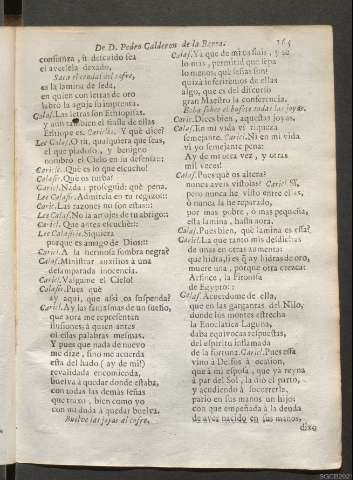 De D. Pedro Calderon de la Barca. 365
confianza, ù descuido sea
el averseia dexado,
Saca el cendal del cofre,
es la lamina de seda,
en quien con letras de oro
labrò la aguja la imprenta.
Calas. Las letras son Ethiopisas,
y aun tambien el frasse de ellas
Ethiope es. Caricl. Y què dice?
Lee Calas. O tù, qualquiera que seas,
el que piadoso, y benigno
nombro el Cielo en tu defensa:::
Caricl. Què es lo que escucho!
Calasir. Que os turba?
Caricl. Nada: proseguid: què pena.
Lee Calasir. Admitela en tu regazo:::
Caricl. Las razones no son estas:::
Lee Calas. No la arrojes de tu abrigo::
Caricl. Que antes escuchè:::
Lee Calasir. Siquiera
porque es amago de Dios:::
Caricl. A la inmensa sombra negra?
Calas. Ministrar auxilios à una
desamparada inocencia.
Caricl. Valgame el Cielo!
Calasir. Pues què
ay aqui, que assi os suspenda?
Caricl. Ay las fantasmas de un sueño,
que aora me representan
ilusiones, à quien antes
oì essas palabras mesmas.
Y pues que nada de nuevo
me dize, sino me acuerda
esta del hado (ay de mi!)
revalidada encomienda,
buelva à quedar donde estaba,
con todas las demàs señas
que traxo, bien como yo
con mi duda à quedar buelva.
Buelve las joyas al cofre.
Calas. Yà que de mi os fiais, y se
lo mas, permitid que sepa
lo menos; què señas son?
quizà inferiremos de ellas
algo, que es del discurso
gran Maestro la conferencia.
Buelve sobre el bufete todas las joyas.
Caricl. Dices bien, aquestas joyas.
Calas. En mi vida vì riqueza
semejante. Caricl. Ni en mi vida
vì yo semejante pena:
Ay de mi otra vez, y otras
mil veces!
Calas. Pues què os altera?
nunca aveis vistolas? Caricl. Sì,
pero nunca he visto entre el as,
ò nunca la he reparado,
por mas pobre, ò mas pequeña,
esta lamina, hasta aora.
Calas. Pues bien, què lamina es essa?
Caricl. La que tanto mis desdichas
de unas en otras aumenta:
que hidra, si es q̃ ay hidras de oro,
muere una, porque otra crezca:
Arsince, la Pitonisa
de Egypto:::
Calas. Acuerdome de ella,
que en las gargantas del Nilo,
donde los montes estrecha
la Enoclatica Laguna,
daba equivocas respuestas,
del espiritu inflamada
de la fortuna. Caricl. Pues essa
vino à Delfos à ocasion,
que à mi esposa, que ya reyna
à par del Sol, la diò el parto,
y acudiendo à socorrerla,
pariò en sus manos un hijo:
con que empeñada à la deuda
de aver nacido en sus manos,
dixo
SGCB202